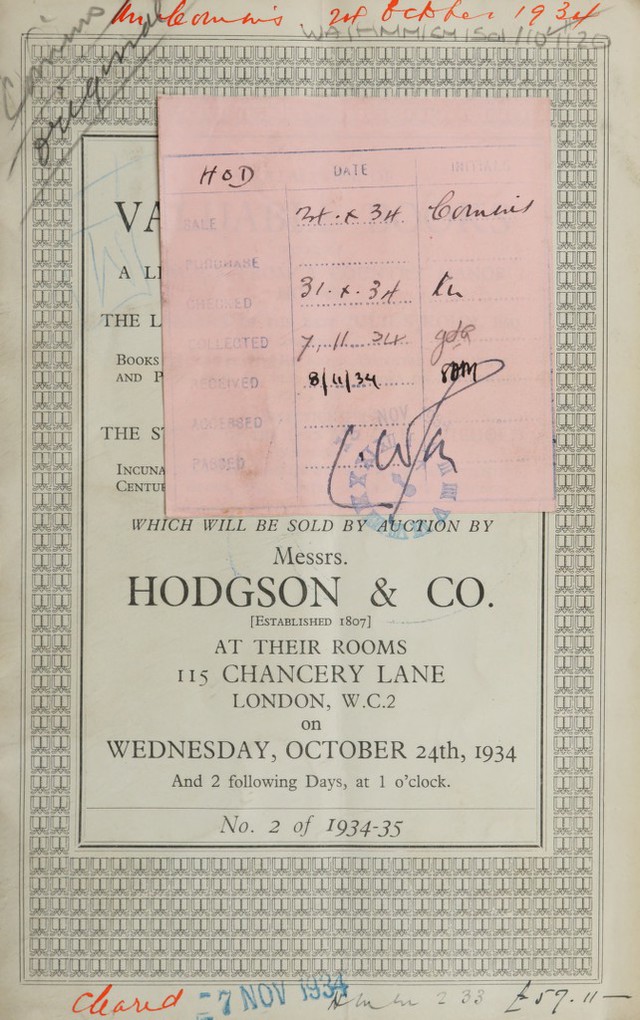 Mr Comins. 24 October 1934
WA/HMM/CM/Sal/
Comins
original
HOD
DATE
INITIALS
SALE
24.x.34
Comins
PURCHASE
CHECKED
31.x.34
COLLECTED
7.11.34
RECEIVED
8/11/34
ACCESSED
PASSED
VA
A LI
THE L
BOOKS
AND P
THE ST
INCUNA
CENTUR
WHICH WILL BE SOLD BY AUCTION BY
Messrs.
HODGSON & CO.
[ESTABLISHED 1807]
AT THEIR ROOMS
115 CHANCERY LANE
LONDON, W.C.2
on
WEDNESDAY, OCTOBER 24th, 1934
And 2 following Days, at 1 o'clock.
No. 2 of 1934-35
Cleared -7 NOV 1934 233 £57.11-